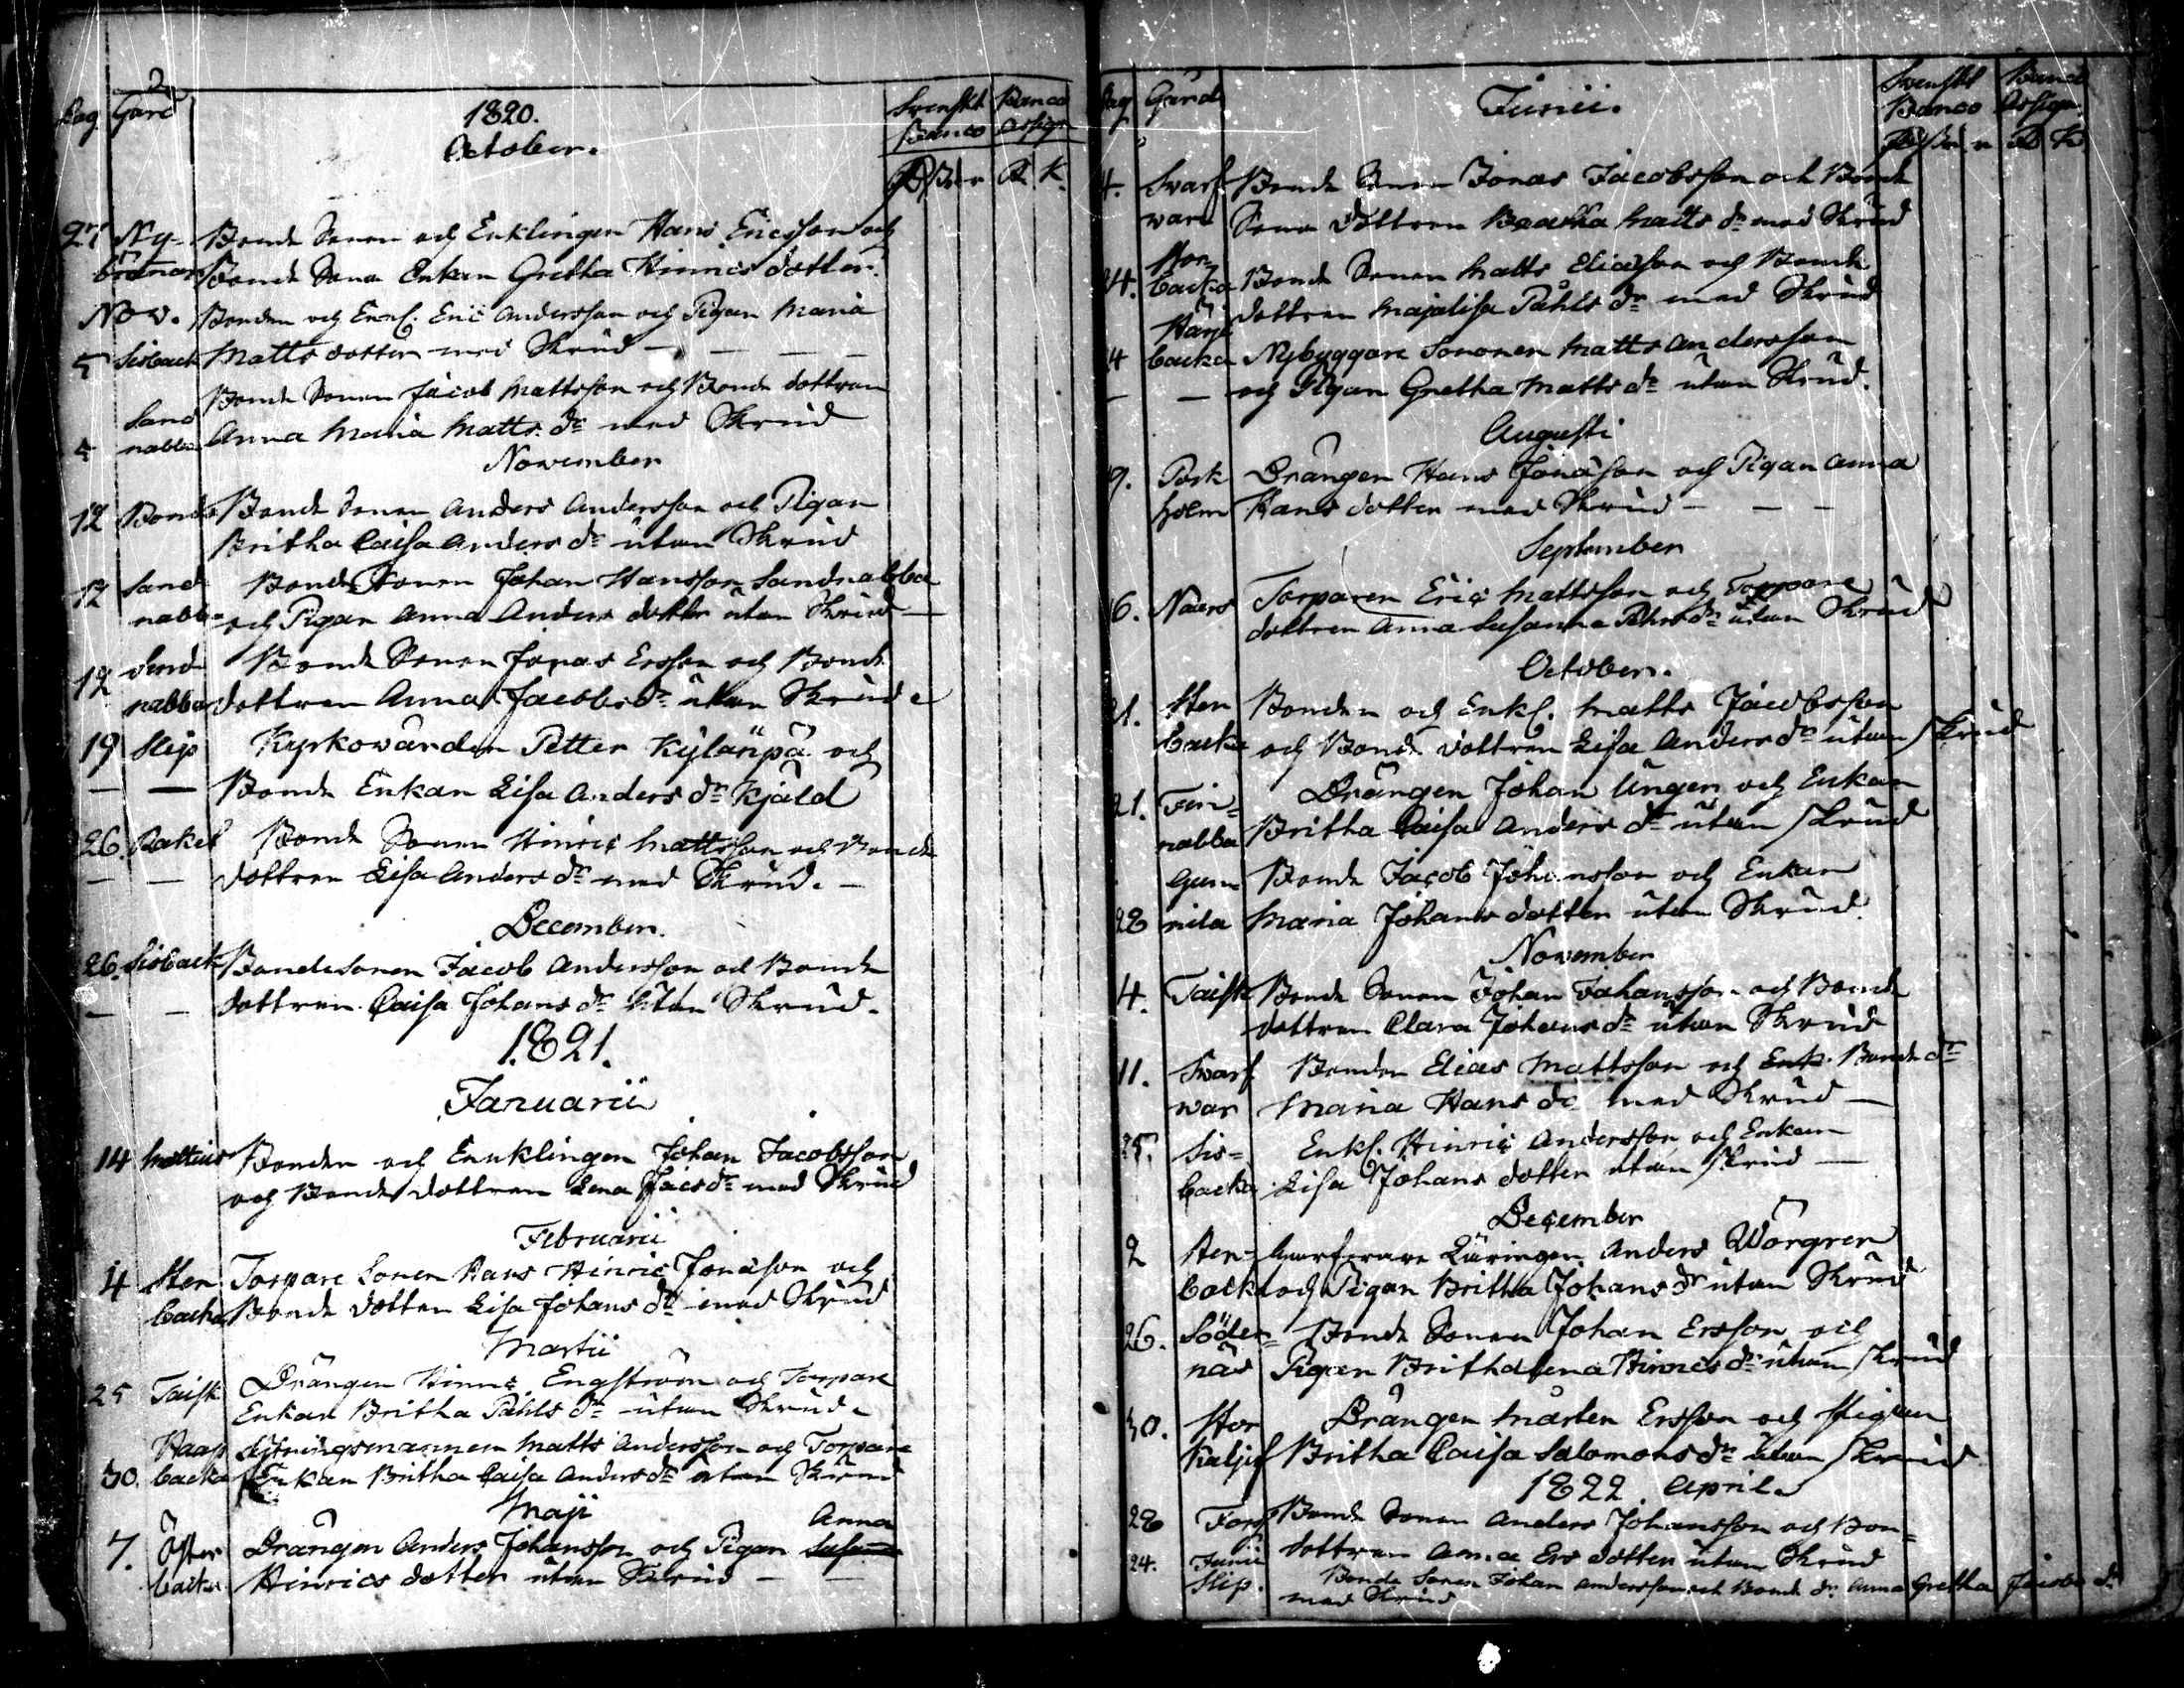 2
Dag Gård 1820. Svenskt Banco
October. Banco Assign
R K.
27 Ny- Bonde Sonen och Enklingen Hans Ericsson och
brånars Bonde Sona Enkan Gretha Hinrics dotter
Nov. Bonden och Enkl. Eric Andersson och Pigan Maria
5 Sisback Matts dotter med Skrud — — — —
Bonde Sonen Jacob Mattsson och Bonde dottren
5 Sand nabba Anna Maria Matts dr med Skrud
November
12 Bonds Bonde Sonen Anders Andersson och Pigan
Britha Caisa Anders dr utan Skrud
12 Sand Bonde Sonen Johan Hansson Sandnabba
nabba och Pigan Anna Anders dotter utan Skrud —
12 Sand Bonde Sonen Jonas Ersson och Bonde
nabba dottren Anna Jacobs dr utan Skrud
19 Slip Kyrkovärden Petter Kylänpä och
— — Bonde Enkan Lisa Anders dr Kjäld
26. Bonde Sonen Hinric Mattsson och Bonde
— — dottren Lisa Anders dr med Skrud. —
December.
26. Sisback Bondesonen Jacob Andersson och Bonde
— — dottren Caisa Johans dr utan Skrud.
1821.
Januarii
14 Bonden och Enuklingen Johan Jacobsson
och Bonde dottren Lena dr med Skrud
Februarii
4 Sten Torpare Sonen Hans Hinric Jonasson och
backa Bonde dotter Lisa Johans dr med Skrud
Martii
25 Taisk Drängen Hinric Engström och Torpare
Enkan Britha Påhls dr utan Skrud.
Haap Matts Andersson och Torpare
30. backa Enkan Britha Caisa Anders dr utan Skrud
Maji Anna
7. Öster Drängen Anders Johansson och Pigan Susanna
backa Hinrics dotter utan Skrud — —
Dag Gård Junii. Svenskt Banco
Banco Assign.
R K
4. Svarf Bonde Sonen Jonas Jacobsson och Bonde
vare Sona dottren Matts dr med Skrud
24. backa Bonde Sonen Matts Eliasson och Bonde
dottren Majalisa Påhls dr med Skrud
4 backa Nybyggare Sononen Matts Andersson
— — och Pigan Gretha Matts dr utan Skrud.
Augusti
9. Pork Drängen Hans Jonasson och Pigan Anna
holm Hans dotter med Skrud — — —
September
6. Naars Torparen Eric Mattsson och Torpare
dottren Anna Susanna Pehrs dr utan Skrud
October.
21. Sten Bonden och Enkl. Matts Jacobsson
backa och Bonde dottren Lisa Anders dr utan Skrud
21. Fin= Drängen Johan Ungen och Enkan
nabba Britha Caisa Anders dr utan Skrud
Gun Bonde Jacob Johansson och Enkan
28 nila Maria Johans dotter utan Skrud.
November
4. Taisk Bonde Sonen Johan Johansson och Bonde
dottren Clara Johans dr utan Skrud
11. Svarf Bonden Elias Mattsson och Enk. Bonde dr
var Maria Hans dr med Skrud —
25. Sis= Enkl. Hinric Andersson och Enkan
backa Lisa Johans dotter utan Skrud —
December
2 Sten= Läringen Anders Wörgren
backa och Pigan Britha Johans dr utan Skrud
26. Söder= Bonde Sonen Johan Ersson och
näs Pigan Brithalena Hinrics dr utan Skrud
30. Stor Drängen Mårten Ersson och Pigan
Kaljif Britha Caisa Salomons dr utan Skrud
1822 April.
28 Fors Bonde Sonen Anders Johansson och Bon=
dottren Anna Ers dotter utan Skrud
24. Junii
Slip. Bonde Sonen Johan Andersson och Bonde dr Anna Gretha Jacobs dr
med Skrud